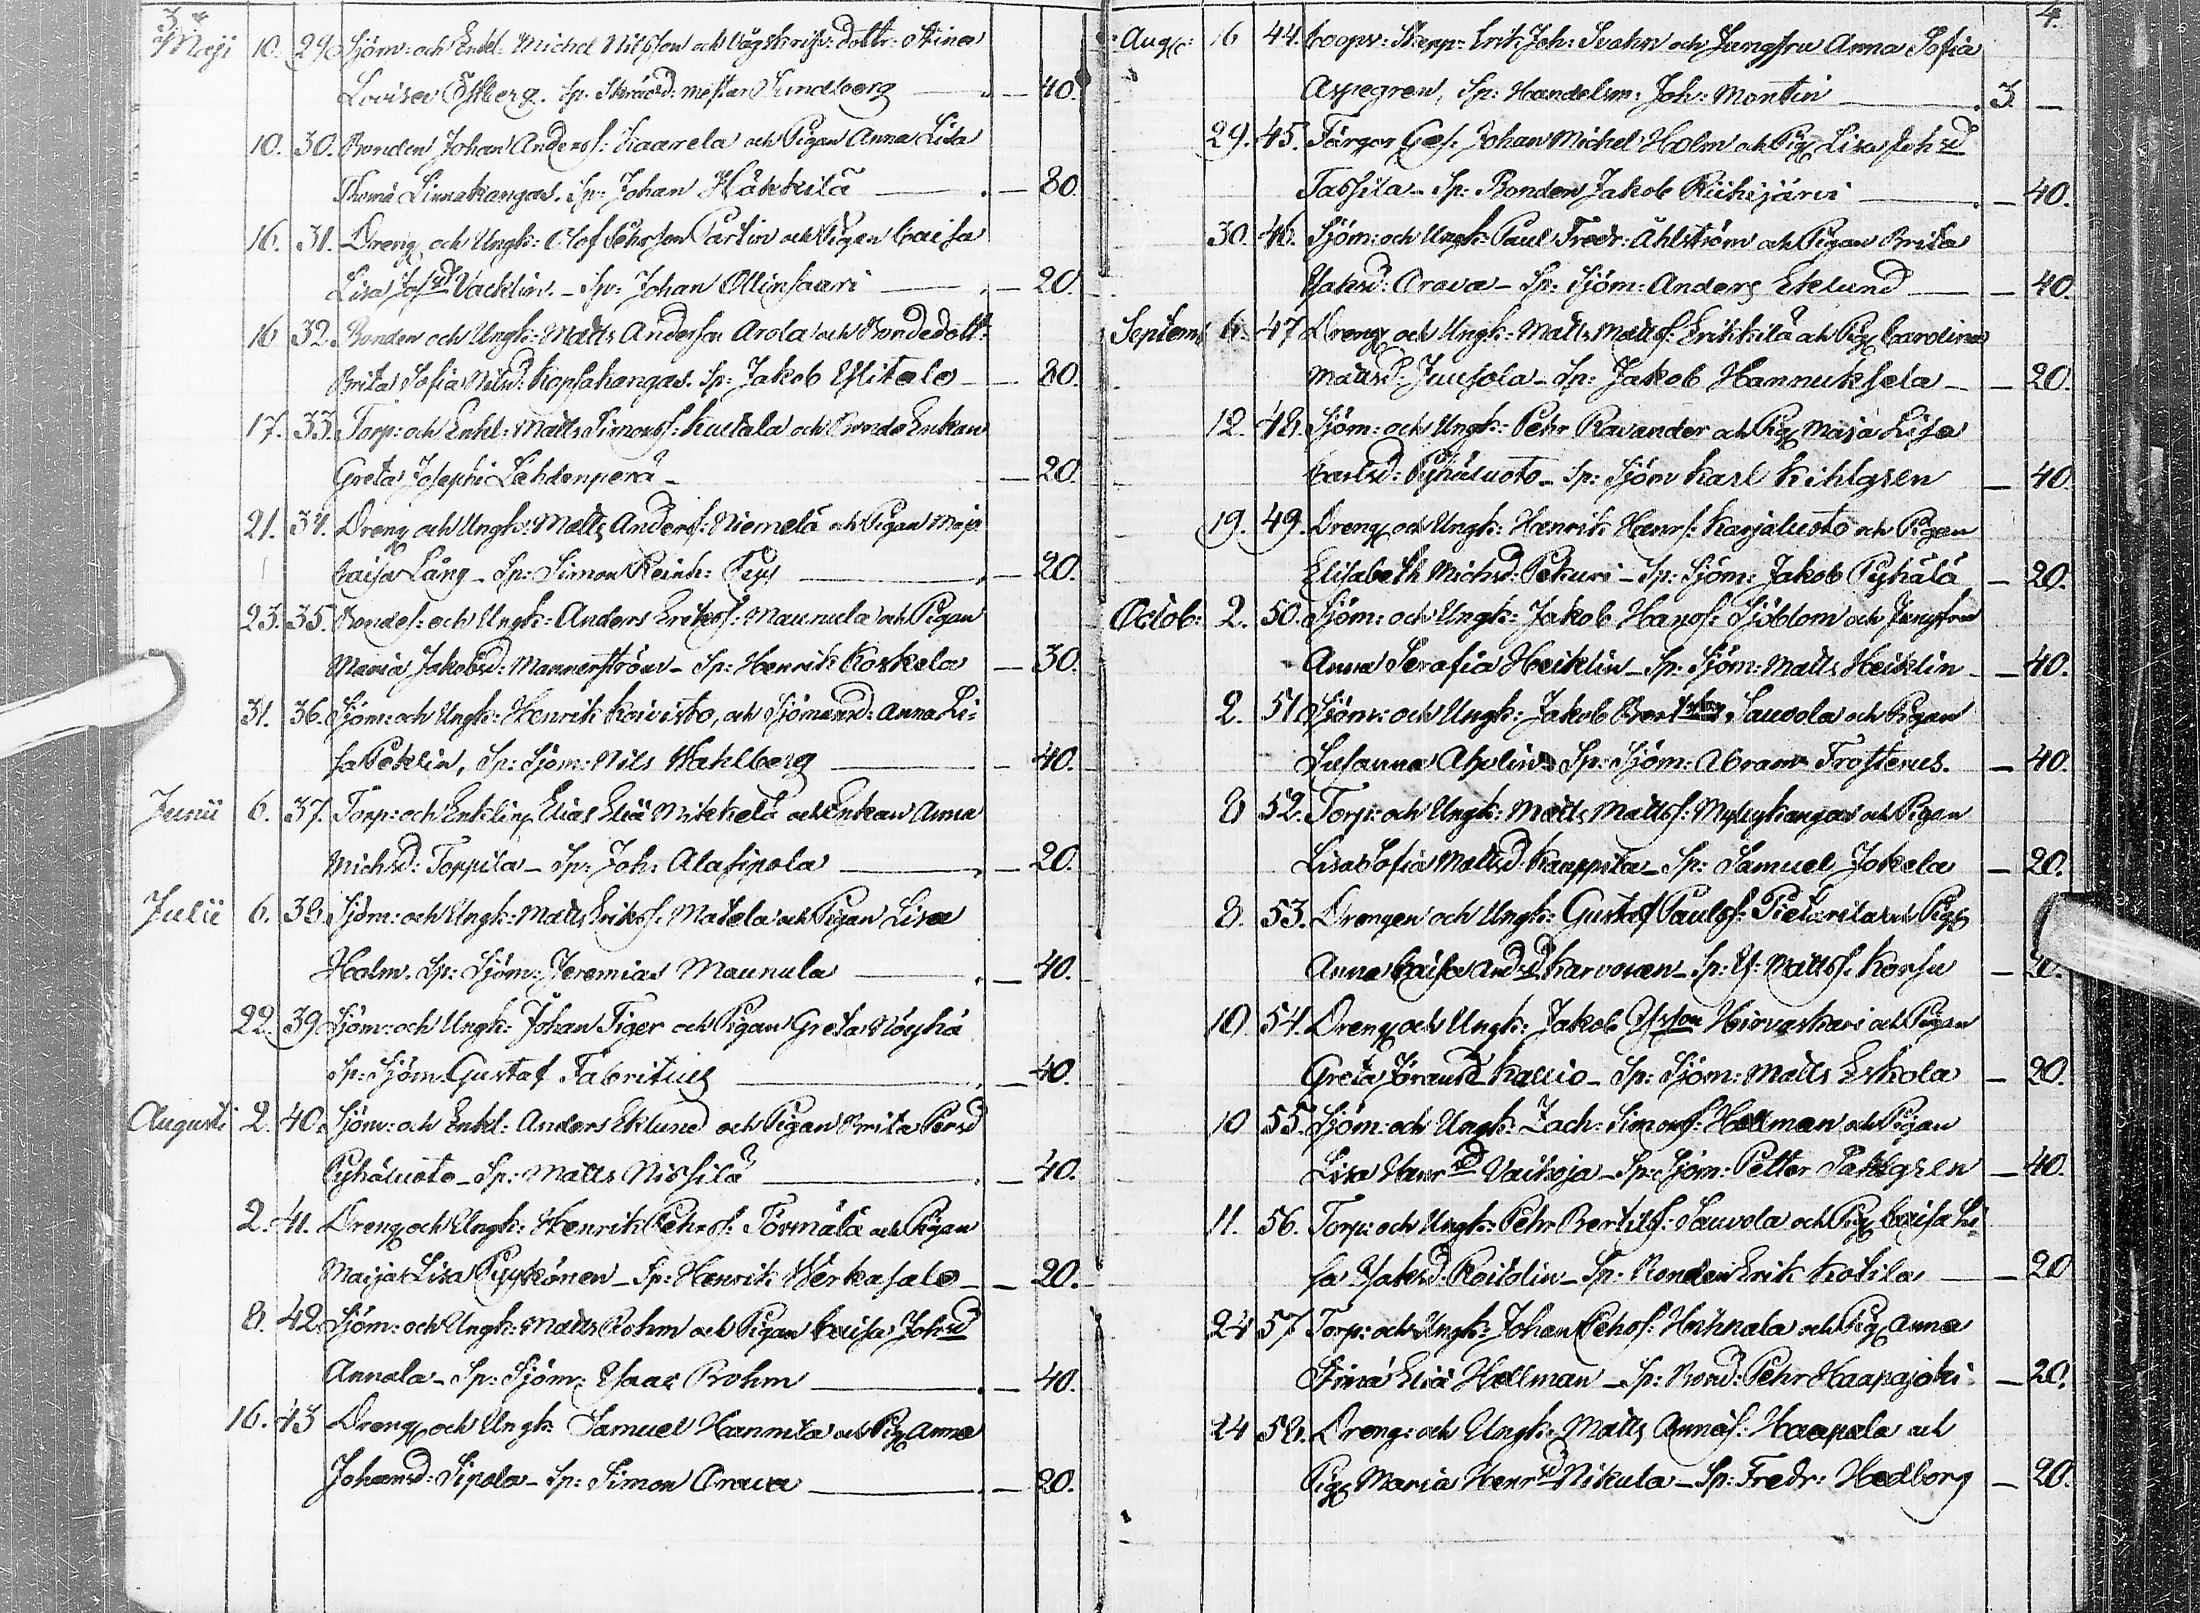 3.
Maji 10. 29. Sjöm: och Enkl: Michel Nilsson och Vågskrifv: dottr: Stina
Lovisa Östberg. Sp: Skrädd: mestar Sundberg — 40.
10. 30. Bonden Johan Anderss: Kaarela och Pigan Anna Lisa
Thomæ Linnakangas. Sp: Johan Häkkilä — 80.
16. 31. Dreng och Ungk: Olof Pehrsson Partin och Pigan Caisa
Lisa Josd Vacklin. — Sp: Johan Ollinsaari — 20.
16 32. Bonden och Ungk: Matts Andersson Arola och Bondedott:
Brita Sofia Nilsd: Kopsakangas. Sp: Jakob Ylitalo — 80.
17. 33. Torp: och Enkl: Matts Simonss: Kustala och Bonde Enkan
Greta Josephi Lahdenperä — 20.
21. 34. Dreng och Ungk: Matts Anderss: Niemelä och Pigan Maja
Caisa Lång — Sp: Simon Reinh: — 20.
23. 35. Bondes: och Ungk: Anders Erikss: Maunula och Pigan
Maria Jakobsd: Mannerström — Sp: Henrik Koskela — 30.
31. 36. Sjöm: och Ungk: Henrik Koivisto, och Sjömansd: Anna Li=
sa Peklin, Sp: Sjöm: Nils Wahlberg — 40.
Junii 6. 37. Torp: och Enkling Elias Eliæ Mikkelä och Enkan Anna
Michsd: Toppila — Sp: Joh: Alasipola — 20.
Julii 6. 38. Sjöm: och Ungk: Matts Erikss: Matela och Pigan Lisa
Holm. Sp: Sjöm: Jeremias Maunula — 40.
22. 39. Sjöm: och Ungk: Johan Tiger och Pigan Greta Nöyhä
Sp: Sjöm: Gustaf Fabritius — 40.
Augusti 2. 40. Sjöm: och Enkl: Anders Eklund och Pigan Brita Persd
Pyhäluoto — Sp: Matts Nissilä — 40.
2. 41. Dreng och Ungk: Henrik Pehrss: Törmälä och Pigan
Maija Lisa Pyykönen — Sp: Henrik Werkasalo — 20.
8. 42. Sjöm: och Ungk: Matts Rohm och Pigan Caisa Johsd
Annala — Sp: Sjöm: Isaac Rohm — 40.
16. 43 Dreng och Ungk: Samuel Hannila och Pig Anna
Johansd: Sipola — Sp: Simon Orava — 20.
4.
Aug: 16 44. Coopv: Skepp: Erik Joh: Svahn och Jungfru Anna Sofia
Aspegren, Sp: Handelsm: Joh: Montin — 3. —
29. 45. Färgar Ges: Johan Michel Holm och Pig Lisa Johsd
Tassila — Sp: Bonden Jakob Kiikijärvi — 40.
30. 46. Sjöm: och Ungk: Paul Fredr: Åhlström och Pigan Brita
Isaksd: Orava — Sp: Sjöm: Anders Eklund — 40.
Septem: 6. 47 Dreng och Ungk: Matts Mattss: Erikkilä och Pig Carolina
Mattsd: Juusola — Sp: Jakob Hannuksela — 20.
12. 48. Sjöm: och Ungk: Pehr Ravander och Pig Maja Lisa
Carlsd: Pyhäluoto — Sp: Sjöm Karl Kihlgren — 40.
19. 49. Dreng och Ungk: Henrik Henrs: Karjaluoto och Pigan
Elisabeth Michsd: Pekuri — Sp: Sjöm: Jakob Pyhälä — 20.
Octob: 2. 50. Sjöm: och Ungk: Jakob Hanss: Sjöblom och Jungfru
Anna Serafia Heiklin — Sp: Sjöm: Matts Heiklin — 40.
2. 51 Sjöm: och Ungk: Jakob Sauvola och Pigan
Susanna Aholin — Sp: Sjöm: Abram Frosterus. — 40.
8 52. Torp: och Ungk: Matts Mattss: Myllykangas och Pigan
Lisa Sofia Mattsd Kauppila — Sp: Samuel Jokela — 20.
8. 53. Drengen och Ungk: Gustaf Paulss: Pietarila och Pig
Anna Caisa Andsd Karvonen — Sp: Is: Mattss: Korsu — 20.
10. 54. Dreng och Ungk: Jakob Hirvaskari och Pigan
Greta Göransd Kallio — Sp: Sjöm: Matts Eskola — 20.
10 55. Sjöm: och Ungk: Zach: Simonss: Hellman och Pigan
Lisa Henrsd Vaikoja — Sp: Sjöm: Petter Sahlgren — 40.
11. 56. Torp: och Ungk: Pehr Bertilss: Sauvola och Pig Caisa Li
sa Isaksd: Roitolin — Sp: Bonden Erik Kotila — 20
24 57 Torp: och Ungk: Johan Pehrs: Huhnala och Pig Anna
Stina Eliæ Hellman — Sp: Bond: Pehr Haapajoki — 20.
24 58. Dreng: och Ungk: Matts Annæs: Haapala och
Pig Maria Henrsd Nikula — Sp: Fredr: Hedborg — 20.